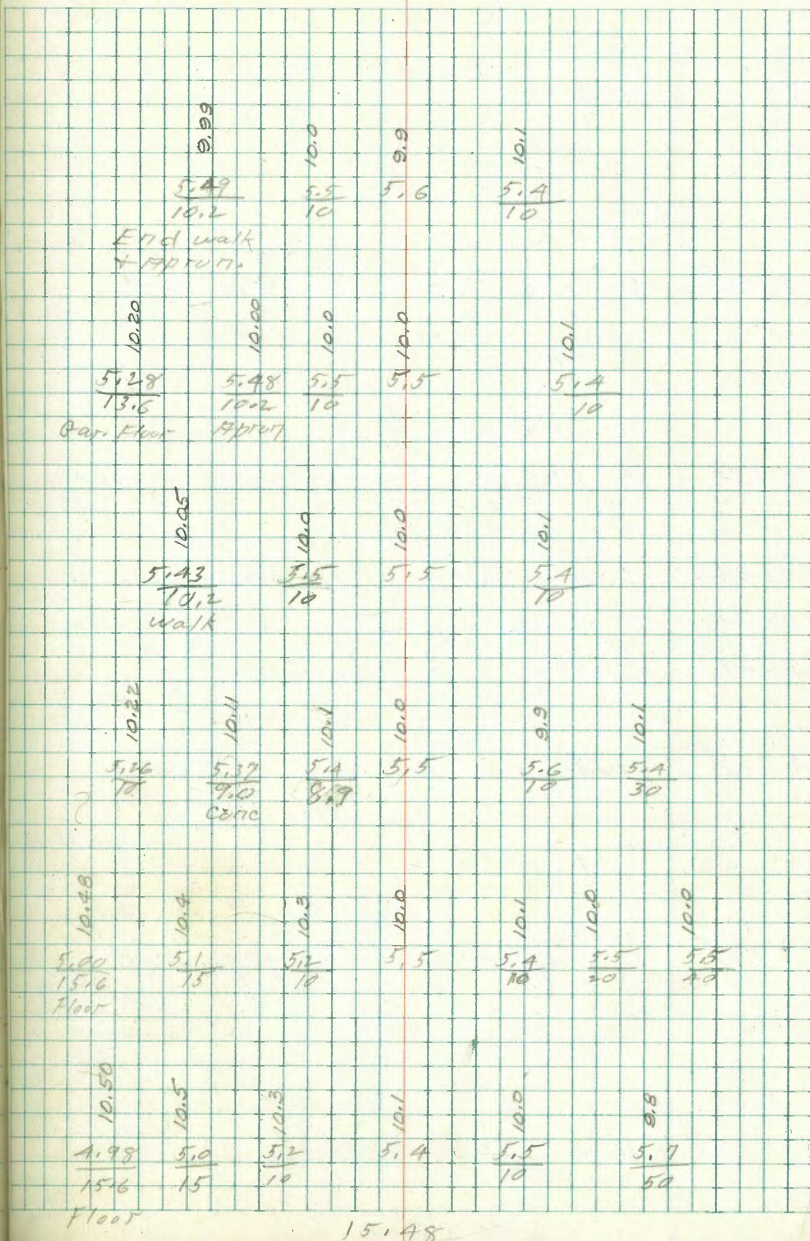 9.99 10.0 9.9 10.1
5.49 5.5 5.6 5.4
10.2 10 10
End walk
+ Apron.
10.20 10.00 10.0 10.0 10.1
5.28 5.48 5.5 5.5 5.4
13.6 10.2 10 10
Gar. Floor Apron
10.05 10.0 10.0 10.1
5.43 5.5 5.5 5.4
10.2 10 10
walk
10.22 10.11 10.1 10.0 9.9 10.1
5.26 5.37 5.4 5.5 5.6 5.4
10 9.0 8.9 10 30
Conc
10.48 10.4 10.3 10.0 10.1 10.0 10.0
5.00 5.1 5.2 5.5 5.4 5.5 5.5
15.6 15 10 10 20 40
Floor
10.50 10.5 10.3 10.1 10.0 9.8
4.98 5.0 5.2 5.4 5.5 5.7
15.6 15 10 10 50
Floor
15.48